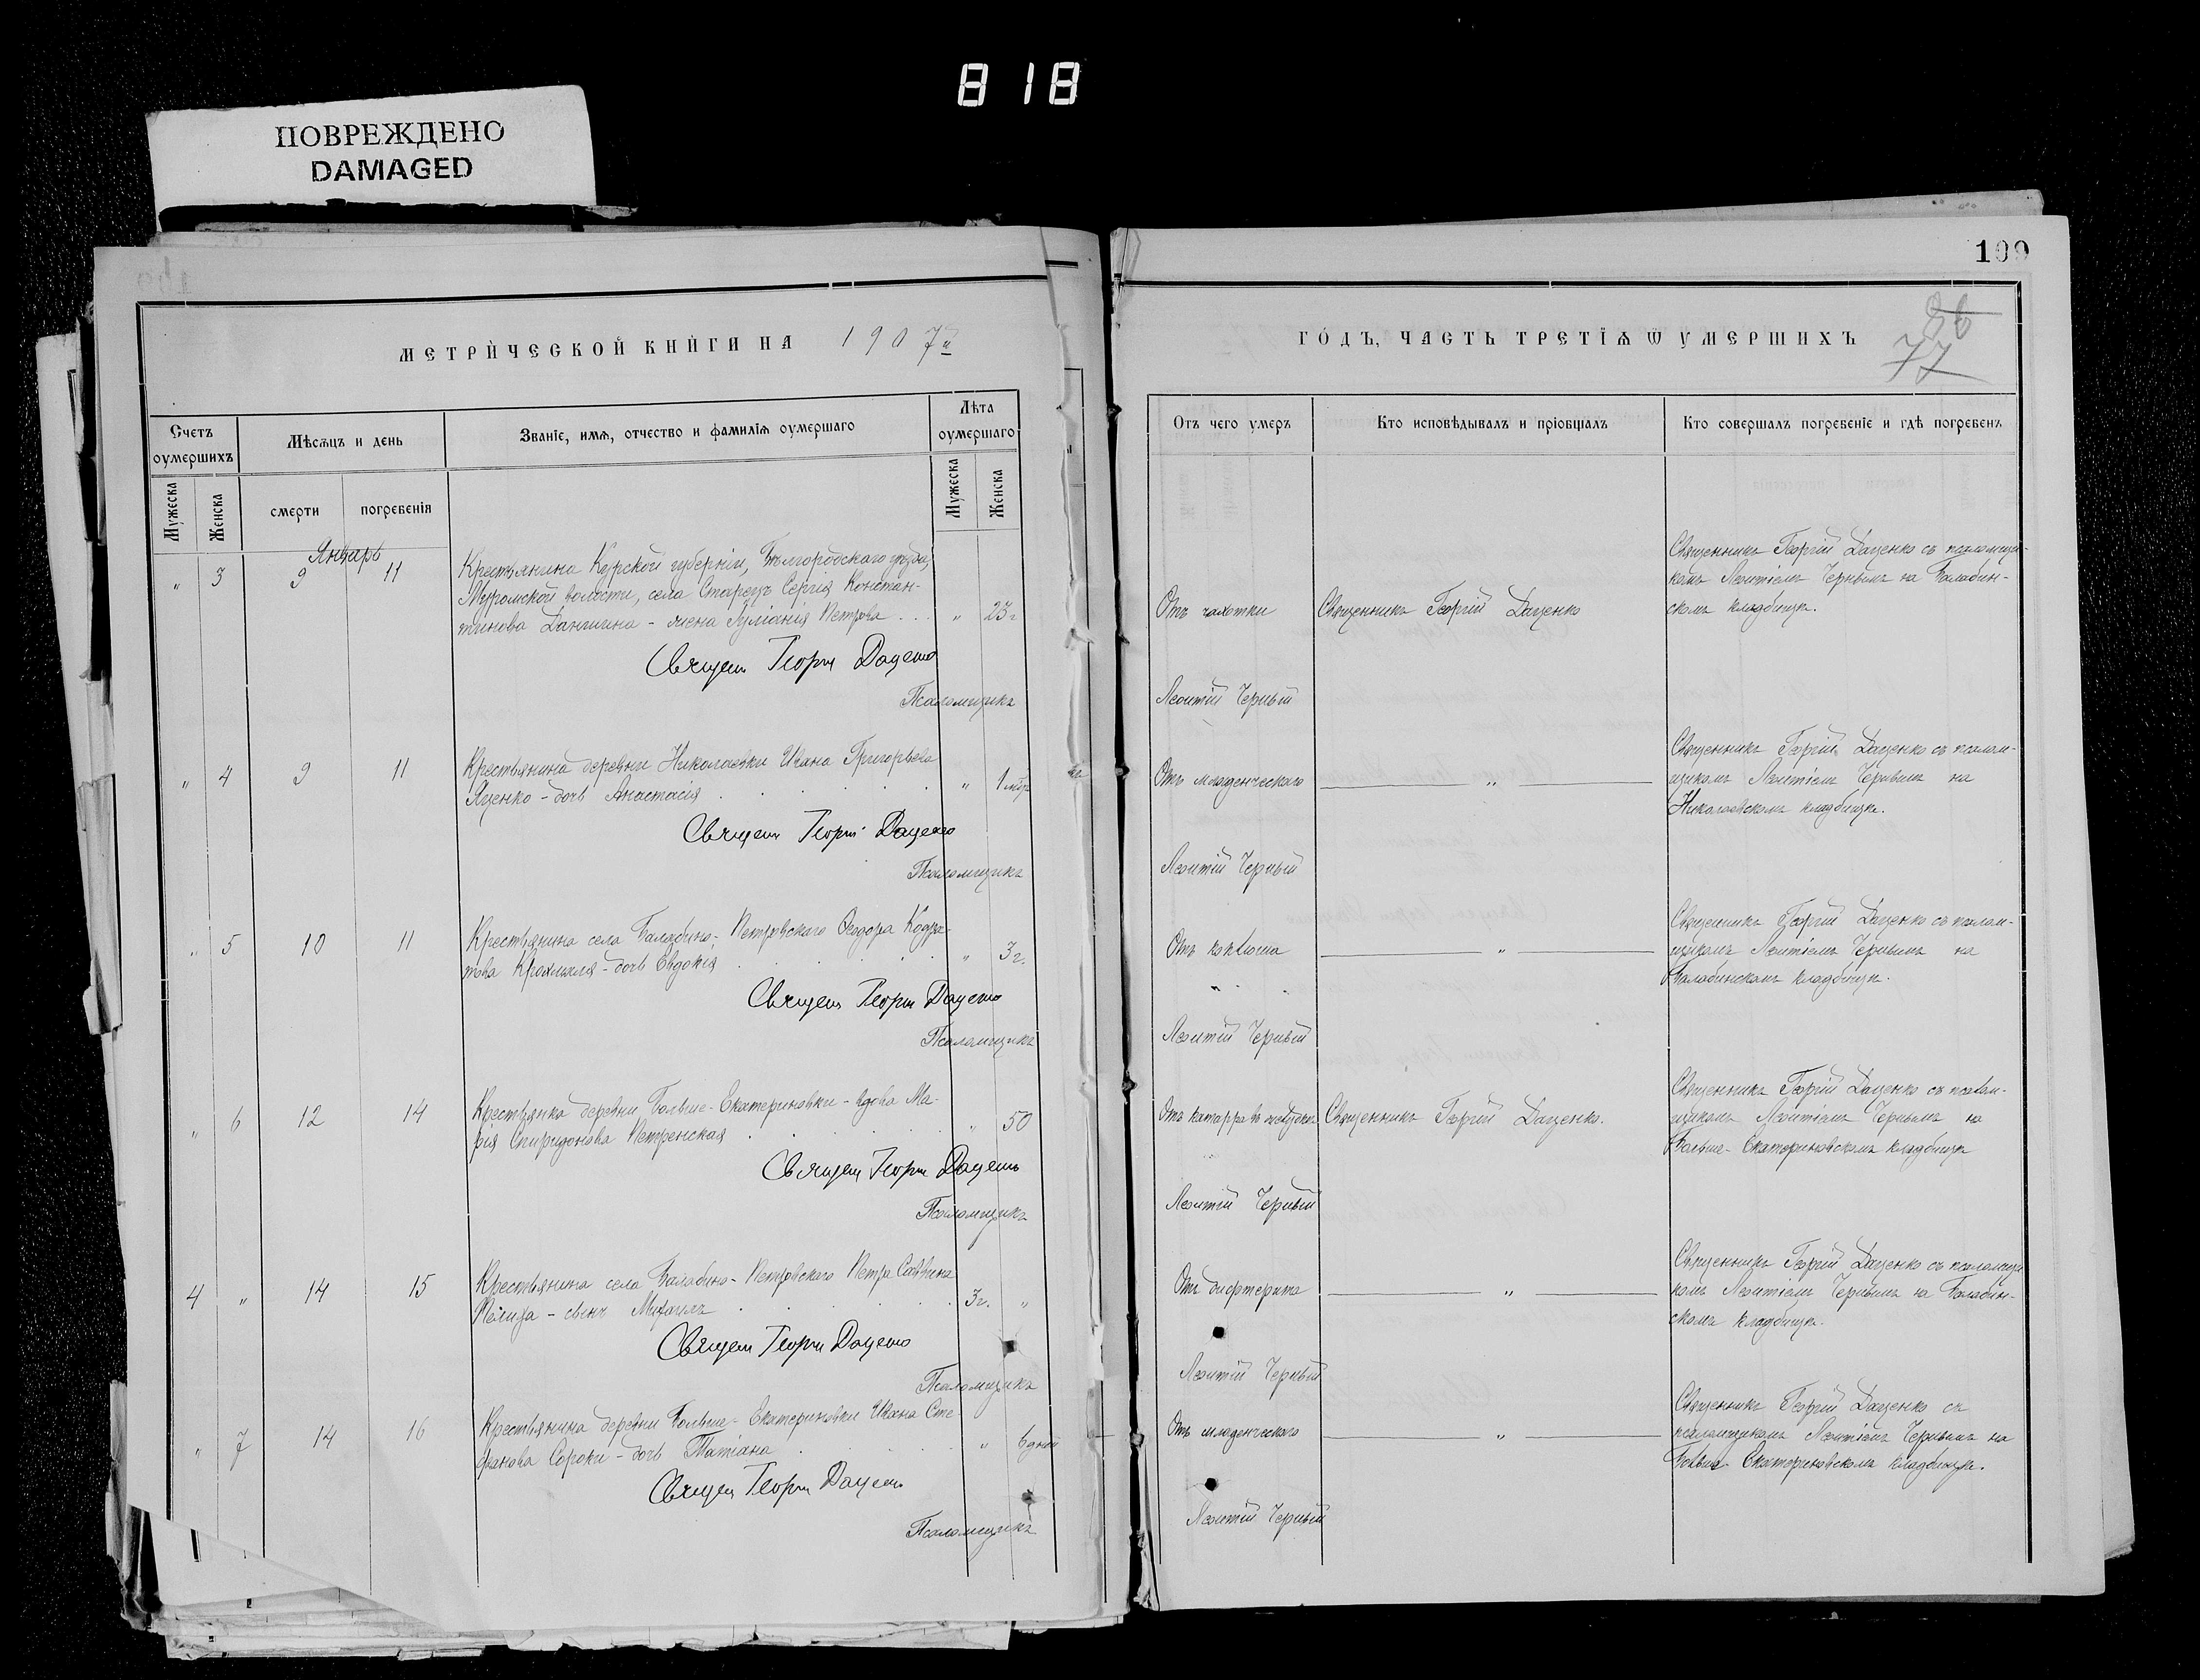 818
ПОВРЕЖДЕНО
DAMAGED
МЕТРИЧЕСКОЙ КНИГИ НА 1907й
Счетъ оумершихъ
Мѣсяцъ и день
Званіе, имя, отчество и фамилія оумершаго
Лѣта оумершаго
Мужеска
Женска
смерти
погребенія
Мужеска
Женска
Январь
" 3 9 11 Крестьянина Курской губерніи, Бѣлгородскаго уѣзда,
Муромской волости, села Старецъ Сергія Констан-
тинова - жена Іуліанія Петрова . . . " 23 г.
Священ Георгій Даценко
Псаломщикъ
" 4 9 11 Крестьянина деревни Николаевки Ивана Григорьева
Яценко - дочь Анастасія . . . . . " 1 мѣс.
Священ Георгій Даценко
Псаломщикъ
" 5 10 11 Крестьянина села Балабино-Петровскаго Ѳеодора Кодра-
това - дочь Евдокія . . . . . " 3 г.
Священ Георгій Даценко
Псаломщикъ
" 6 12 14 Крестьянка деревни Больше-Екатериновки - вдова Ма-
рія Спиридонова Петренская . . . . . " 50
Священ Георгій Даценко
Псаломщикъ
4 " 14 15 Крестьянина села Балабино-Петровскаго Петра Саввина
- сынъ Михаилъ . . . . . 3 г. "
Священ Георгій Даценко
Псаломщикъ
" 7 14 16 Крестьянина деревни Больше-Екатериновки Ивана Сте-
фанова Сороки - дочь Татіана . . . . " 6 дней
Священ Георгій Даценко
Псаломщикъ
100
86
77
ГОДЪ, ЧАСТЬ ТРЕТІЯ Ѿ УМЕРШИХЪ
Отъ чего умеръ
Кто исповѣдывалъ и пріобщалъ
Кто совершалъ погребеніе и гдѣ погребенъ
Отъ чахотки
Священникъ Георгій Даценко
Священникъ Георгій Даценко съ псаломщи-
комъ Леонтіемъ Чернымъ на Балабин-
скомъ кладбищѣ.
Леонтій Черный
Отъ младенческаго
"
Священникъ Георгій Даценко съ псалом-
щикомъ Леонтіемъ Чернымъ на
Николаевскомъ кладбищѣ.
Леонтій Черный
Отъ коклюша
"
Священникъ Георгій Даценко съ псалом-
щикомъ Леонтіемъ Чернымъ на
Балабинскомъ кладбищѣ.
Леонтій Черный
Отъ катарра въ желудкѣ
Священникъ Георгій Даценко.
Священникъ Георгій Даценко съ псалом-
щикомъ Леонтіемъ Чернымъ на
Больше-Екатериновскомъ кладбищѣ
Леонтій Черный
Отъ дифтерита
"
Священникъ Георгій Даценко съ псаломщи-
комъ Леонтіемъ Чернымъ на Балабин-
скомъ кладбищѣ.
Леонтій Черный
Отъ младенческаго
"
Священникъ Георгій Даценко съ
псаломщикомъ Леонтіемъ Чернымъ на
Больше-Екатериновскомъ кладбищѣ.
Леонтій Черный